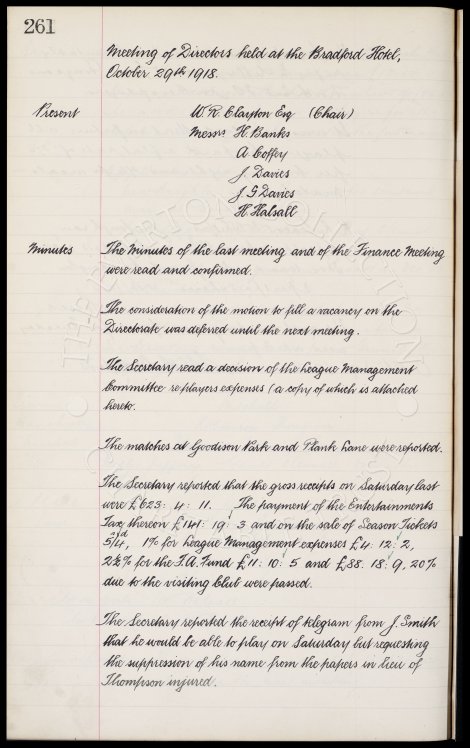 261
Meeting of Directors held at the Bradford Hotel,
October 29th 1918.
Present W. R. Clayton Esq (Chair)
Messrs H. Banks
A. Coffey
J. Davies
J G Davies
H. Halsall
Minutes The Minutes of the last meeting and of the Finance Meeting
were read and confirmed.
The consideration of the motion to fill a vacancy on the
Directorate was deferred until the next meeting.
The Secretary read a decision of the League Management
Committee re players expenses (a copy of which is attached
hereto.
The matches at Goodison Park and Plank Lane were reported.
The Secretary reported that the gross receipts on Saturday last
were £623: 4: 11. The payment of the Entertainments
Tax thereon £141: 19: 3 and on the sale of Season Tickets
5/4d, 1% for League Management expenses £4: 12: 2,
2½% for the F.A. Fund £11: 10: 5 and £88: 18: 9, 20%
due to the visiting Club were passed.
The Secretary reported the receipt of telegram from J. Smith
that he would be able to play on Saturday but requesting
the suppression of his name from the papers in lieu of
Thompson injured.
THE EVERTON COLLECTION